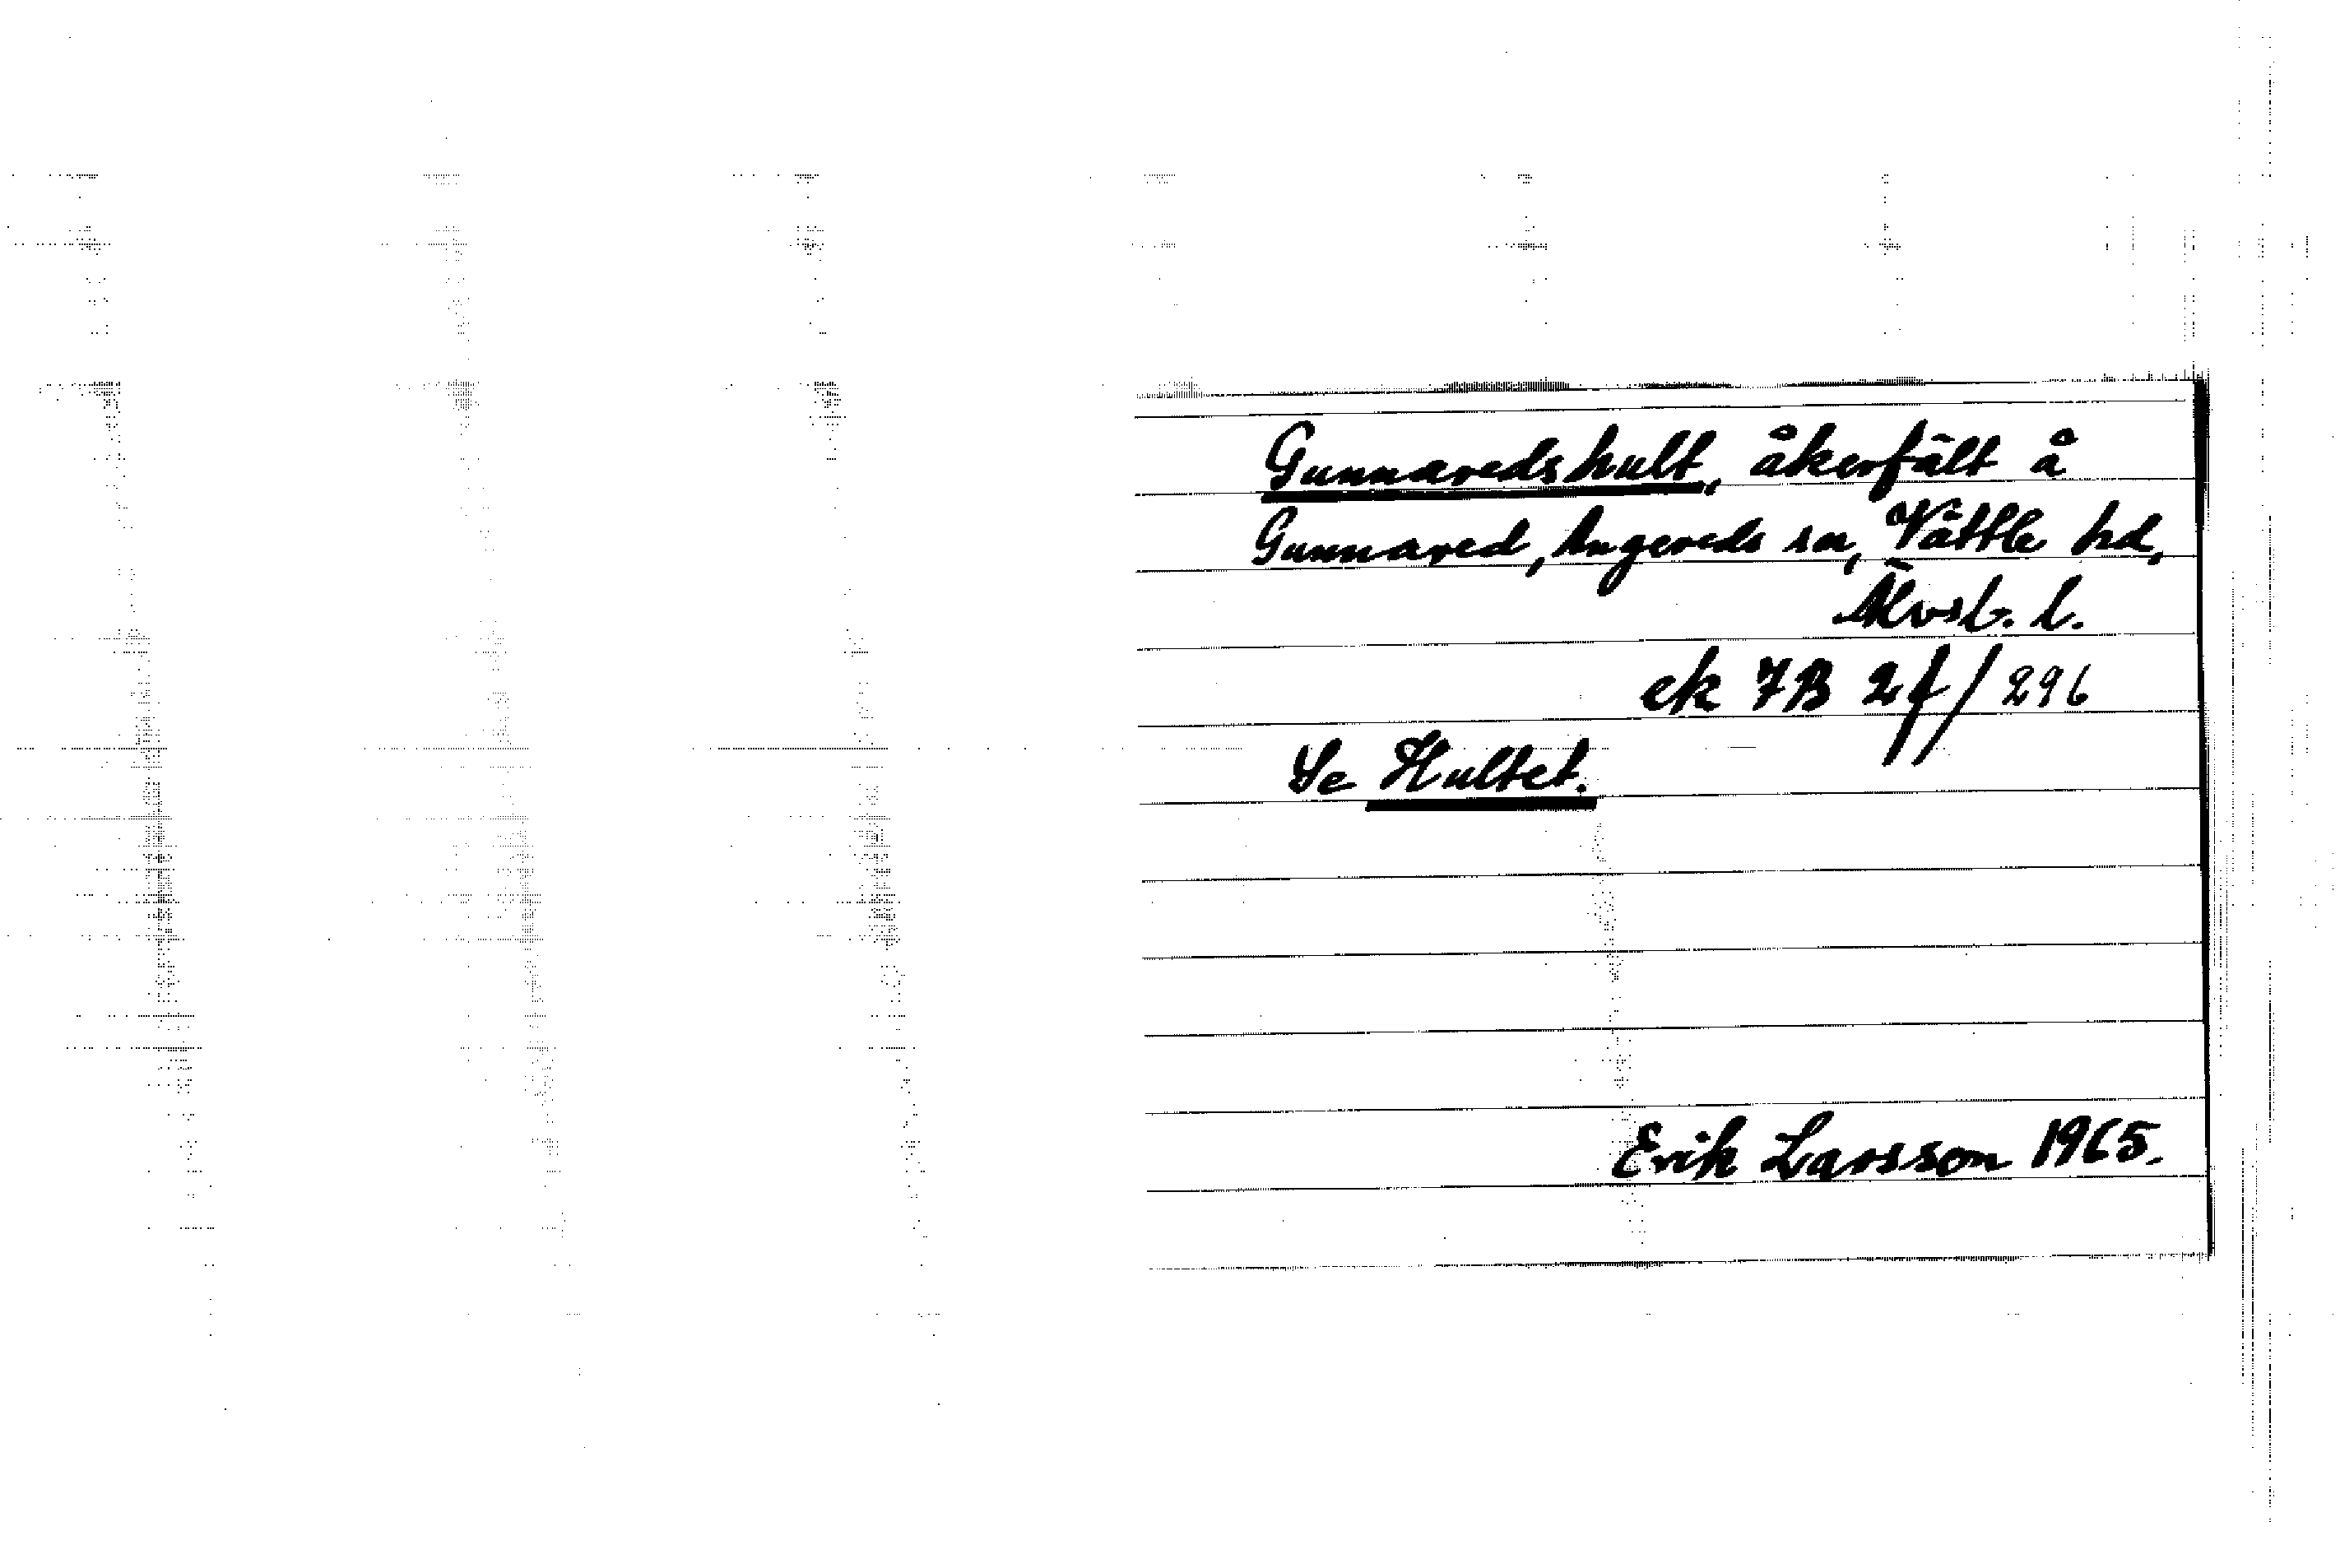 Gunnaredshult, åkerfält å
Gunnared, Angereds sn, Vättle hd,
Älvsb. l.
ek 7B 2f/296
Se Hultet.
Erik Larsson 1965.